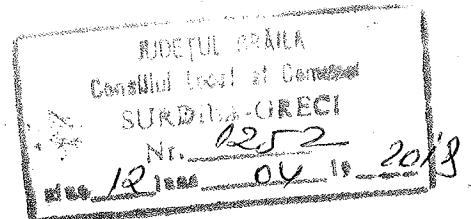 JUDEȚUL BRĂILA
Consiliul Local al Comunei
SURDILA-GRECI
Nr. 1252
ziua 12 luna 04 19 2018